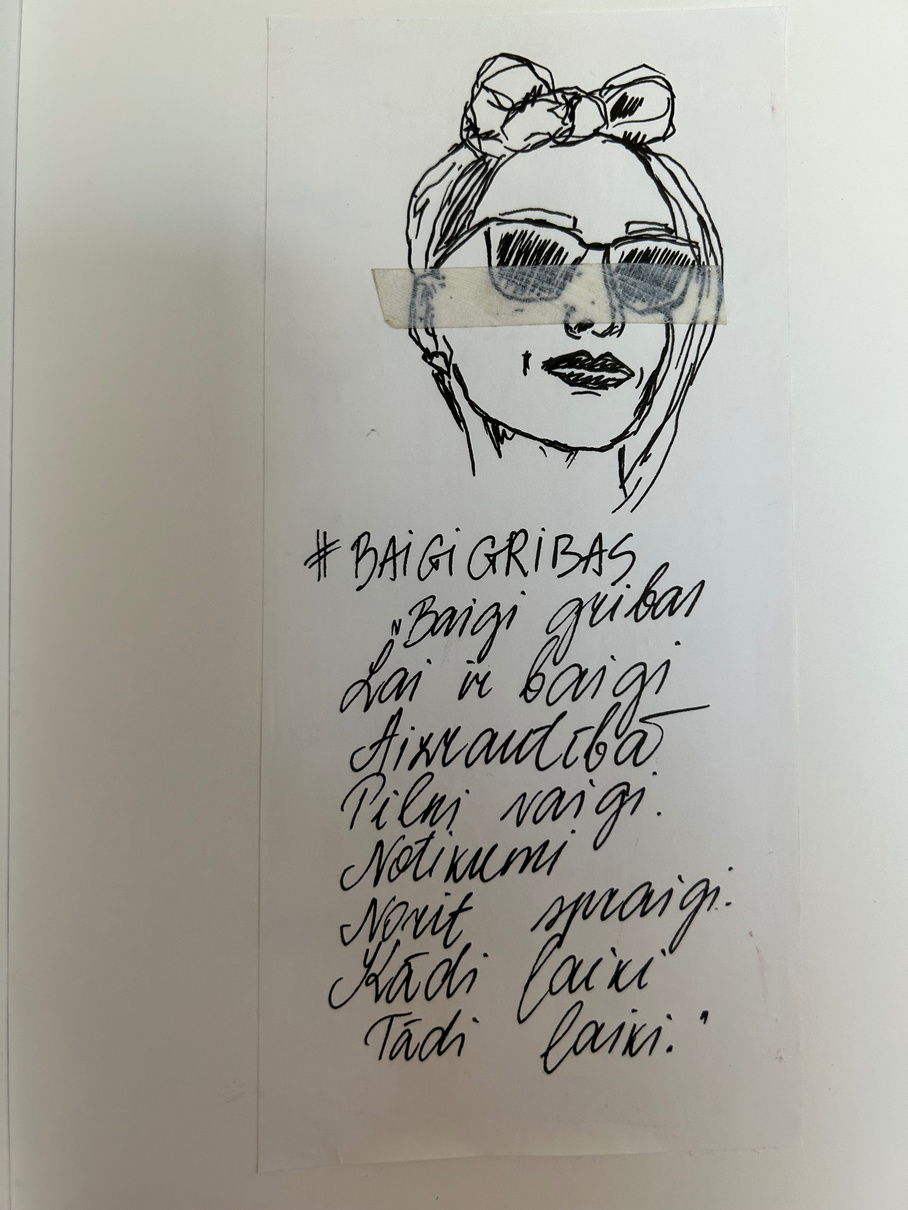 #BAIGIGRIBAS
"Baigi gribas
Lai ir baigi
Aizrautībā
Pilni vaigi.
Notikumi
Norit spraigi.
Kādi laiki
Tādi laiki."